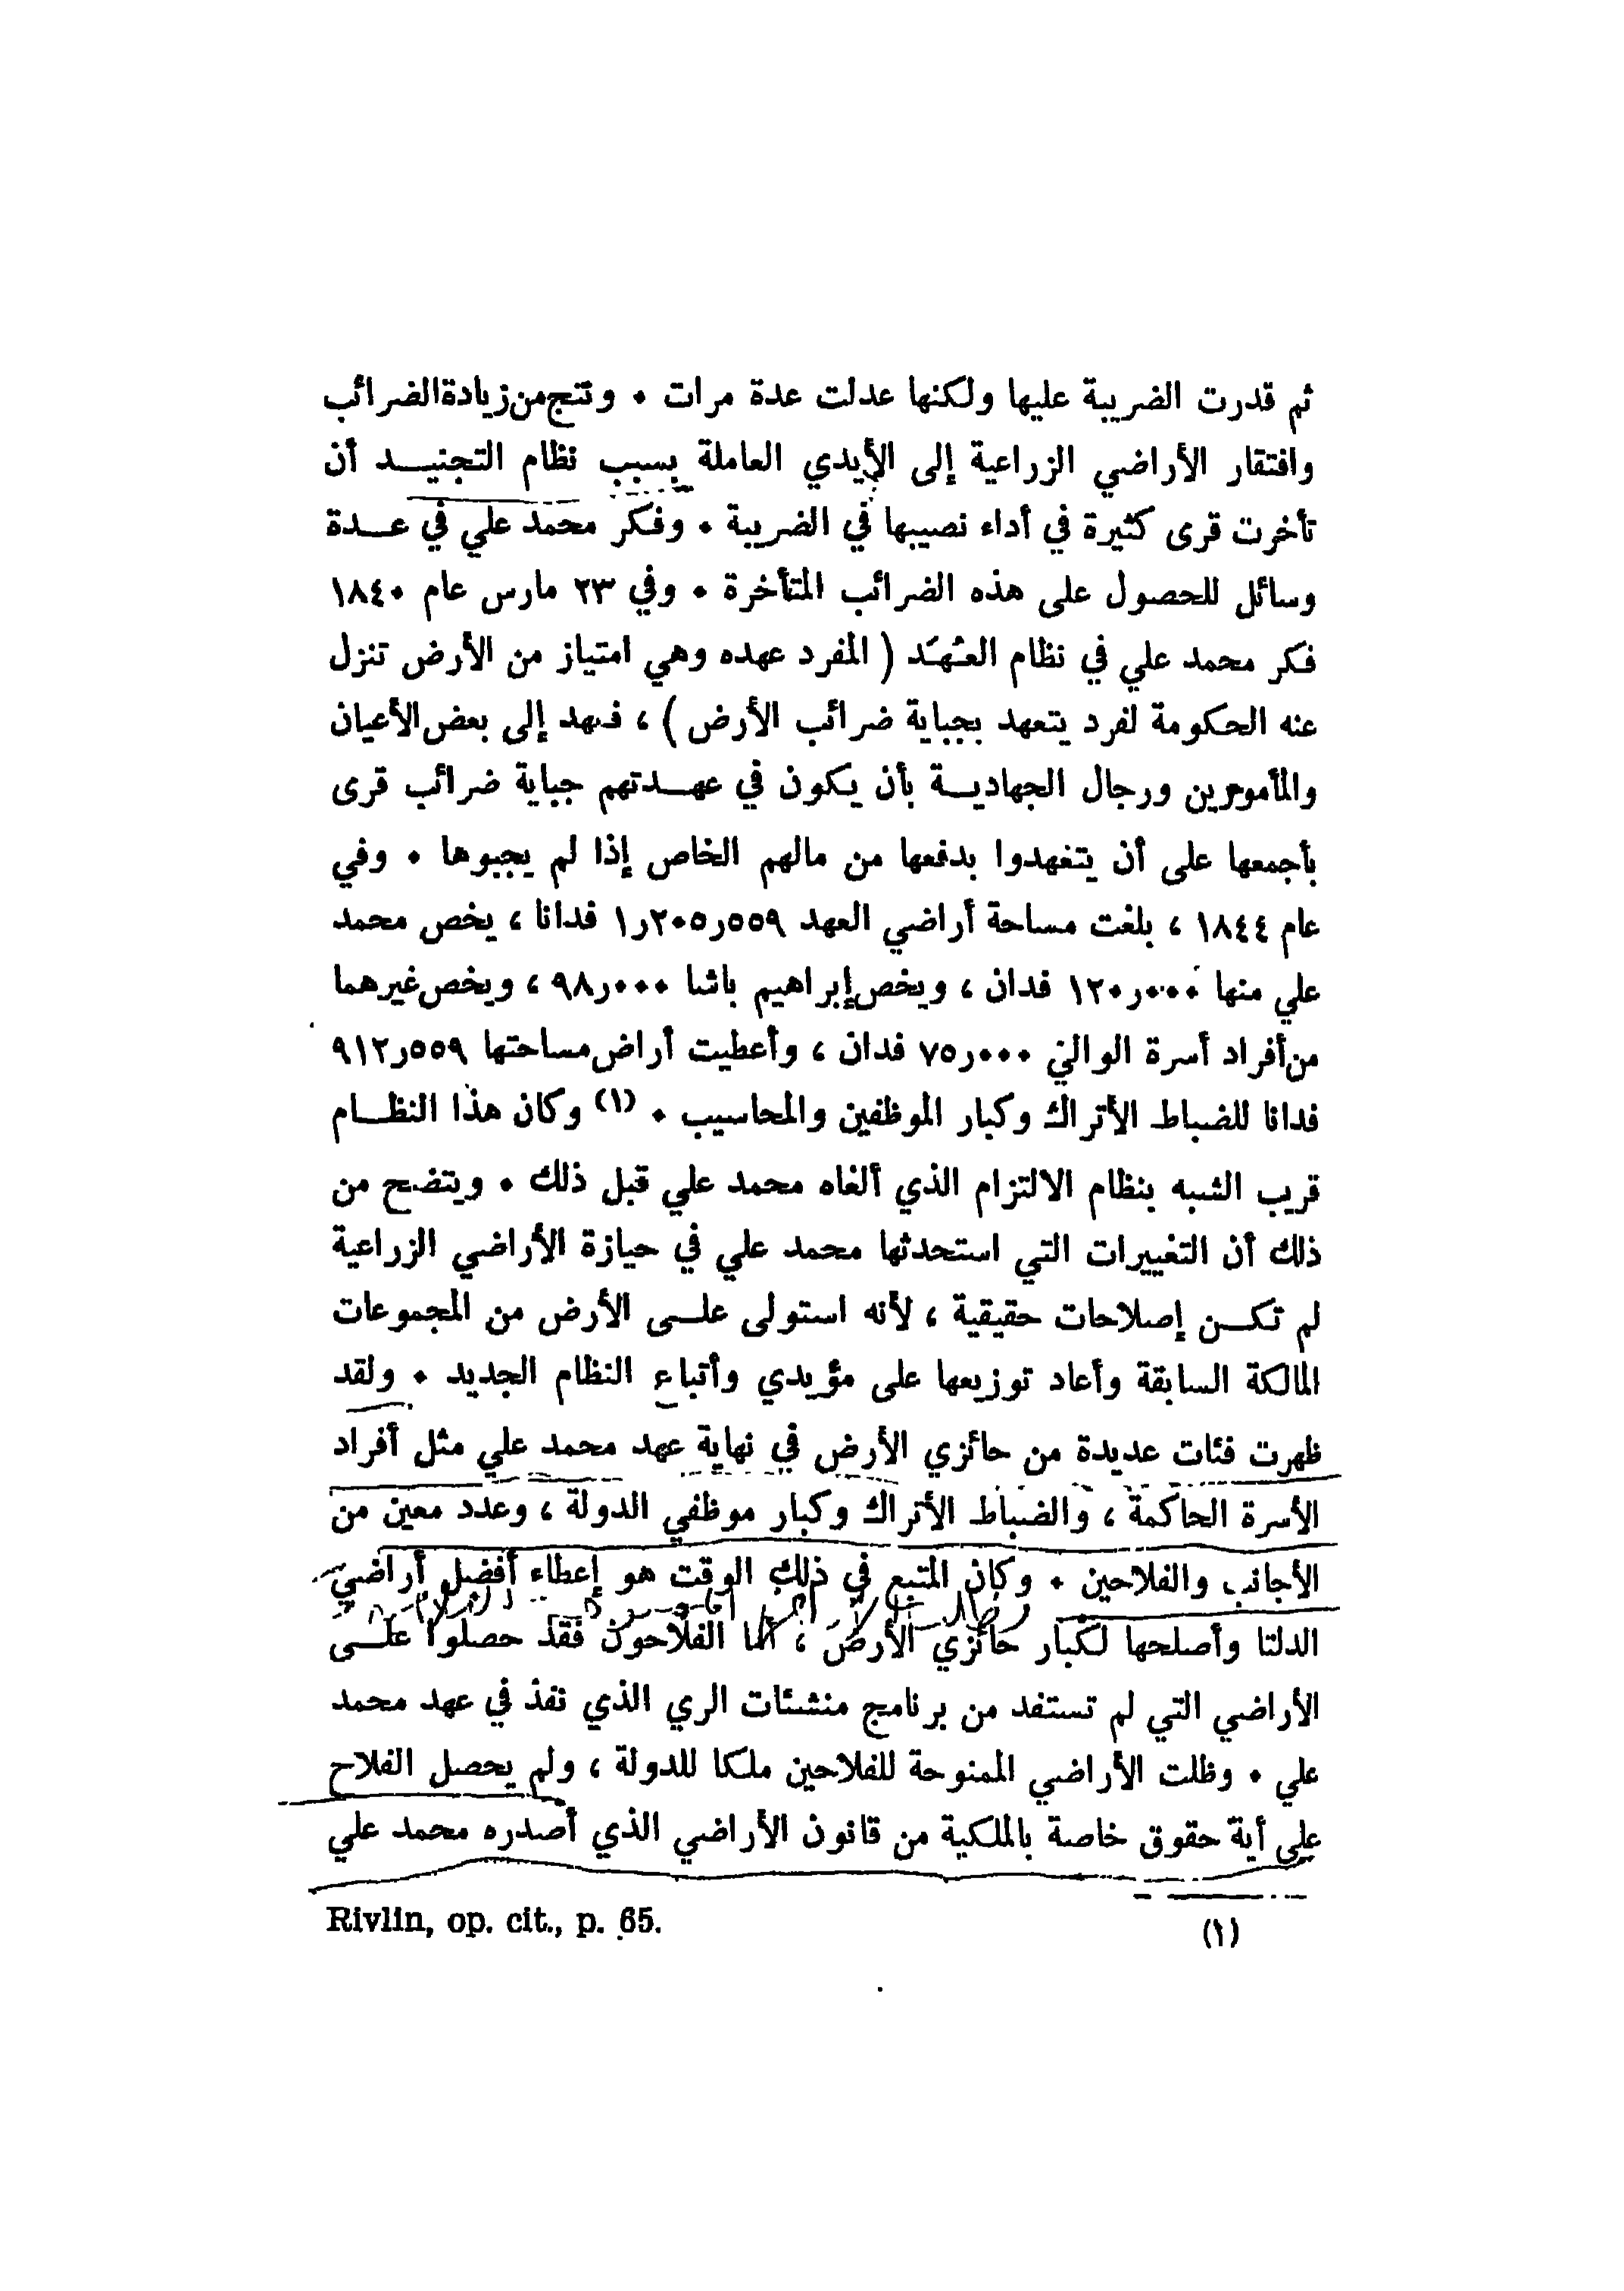 ثم قدرت الضريبة عليها ولكنها عدلت عدة مرات ٠ ونتج من زيادة الضرائب
وافتقار الأراضي الزراعية إلى الأيدي العاملة بسبب نظام التجنيـــد أن
تأخرت قرى كثيرة في أداء نصيبها في الضريبة ٠ وفكر محمد علي في عـــدة
وسائل للحصول على هذه الضرائب المتأخرة ٠ وفي ٢٣ مارس عام ١٨٤٠
فكر محمد علي في نظام العُهَد ( المفرد عهده وهي امتياز من الأرض تنزل
عنه الحكومة لفرد يتعهد بجباية ضرائب الأرض ) ، فعهد إلى بعض الأعيان
والمأمورين ورجال الجهاديـــة بأن يكون في عهـــدتهم جباية ضرائب قرى
بأجمعها على أن يتعهدوا بدفعها من مالهم الخاص إذا لم يجبوها ٠ وفي
عام ١٨٤٤ ، بلغت مساحة أراضي العهد ١٫٢٠٥٫٥٥٩ فدانا ، يخص محمد
علي منها ١٢٠٫٠٠٠ فدان ، ويخص إبراهيم باشا ٩٨٫٠٠٠ ، ويخص غيرهما
من أفراد أسرة الوالي ٧٥٫٠٠٠ فدان ، وأعطيت أراض مساحتها ٩١٢٫٥٥٩
فدانا للضباط الأتراك وكبار الموظفين والمحاسيب ٠ (١) وكان هذا النظـــام
قريب الشبه بنظام الالتزام الذي ألغاه محمد علي قبل ذلك ٠ ويتضح من
ذلك أن التغييرات التي استحدثها محمد علي في حيازة الأراضي الزراعية
لم تكـــن إصلاحات حقيقية ، لأنه استولى علـــى الأرض من المجموعات
المالكة السابقة وأعاد توزيعها على مؤيدي وأتباع النظام الجديد ٠ ولقد
ظهرت فئات عديدة من حائزي الأرض في نهاية عهد محمد علي مثل أفراد
الأسرة الحاكمة ، والضباط الأتراك وكبار موظفي الدولة ، وعدد معين من
الأجانب والفلاحين ٠ وكان المتبع في ذلك الوقت هو إعطاء أفضل أراضي
الدلتا وأصلحها لكبار حائزي الأرض ، أما الفلاحون فقد حصلوا علـــى
الأراضي التي لم تستفد من برنامج منشئات الري الذي نفذ في عهد محمد
علي ٠ وظلت الأراضي الممنوحة للفلاحين ملكا للدولة ، ولم يحصل الفلاح
على أية حقوق خاصة بالملكية من قانون الأراضي الذي أصدره محمد علي
(١) Rivlin, op. cit., p. 65.